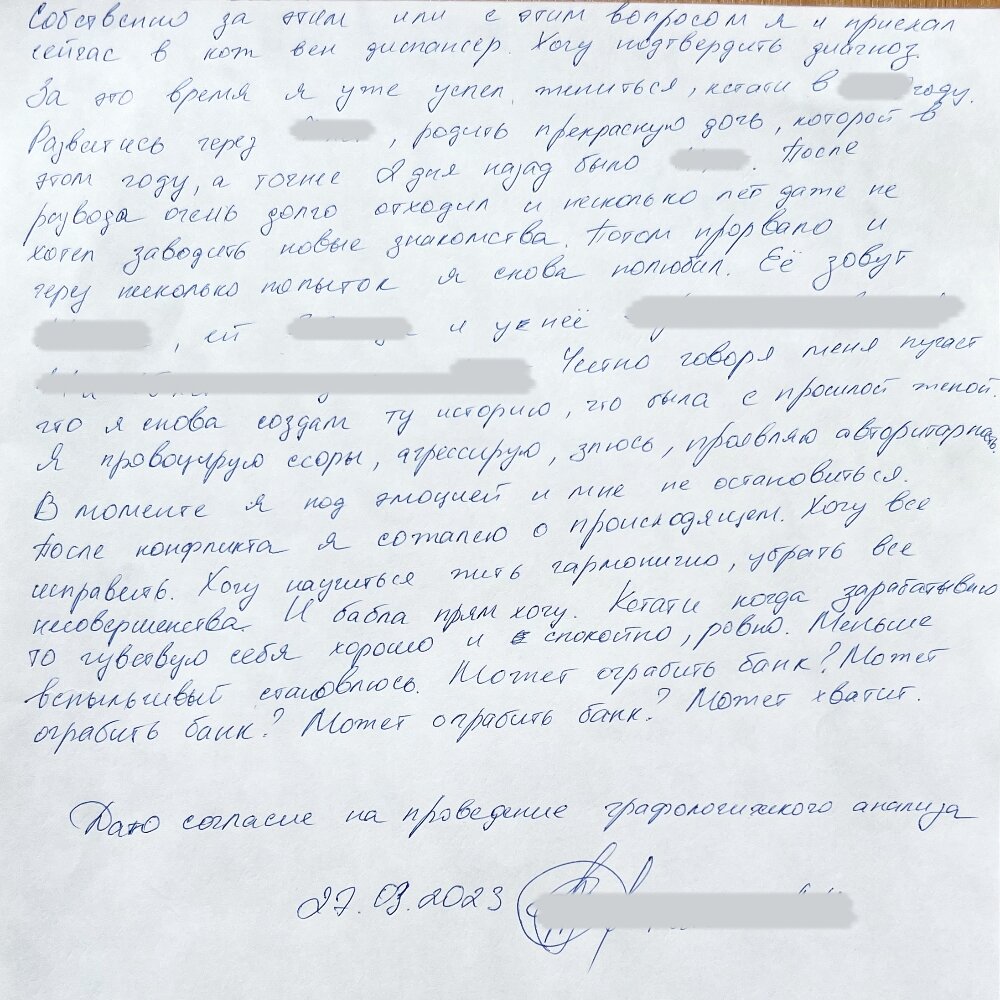 Собственно за этим или с этим вопросом я и приехал
сейчас в кож вен диспансер. Хочу подтвердить диагноз
За это время я уже успел жениться, кстати в году.
Развестись через , родить прекрасную дочь, которой в
этом году, а точнее 2 дня назад было . После
развода очень долго отходил и несколько лет даже не
хотел заводить новые знакомства. Потом прорвало и
через несколько попыток я снова полюбил. Её зовут
, ей и у неё
Честно говоря меня пугает
что я снова создам ту историю, что была с прошлой женой.
Я провоцирую ссоры, агрессирую, злюсь, проявляю авторитарность.
В моменте я под эмоцией и мне не остановиться.
После конфликта я сожалею о происходящем. Хочу все
исправить. Хочу научиться жить гармонично, убрать все
несовершенства. И бабла прям хочу. Кстати когда зарабатываю
то чувствую себя хорошо и спокойно, ровно. Меньше
вспыльчивый становлюсь. Может ограбить банк? Может
ограбить банк? Может ограбить банк? Может хватит.
Даю согласие на проведение графологического анализа
27.03.2023